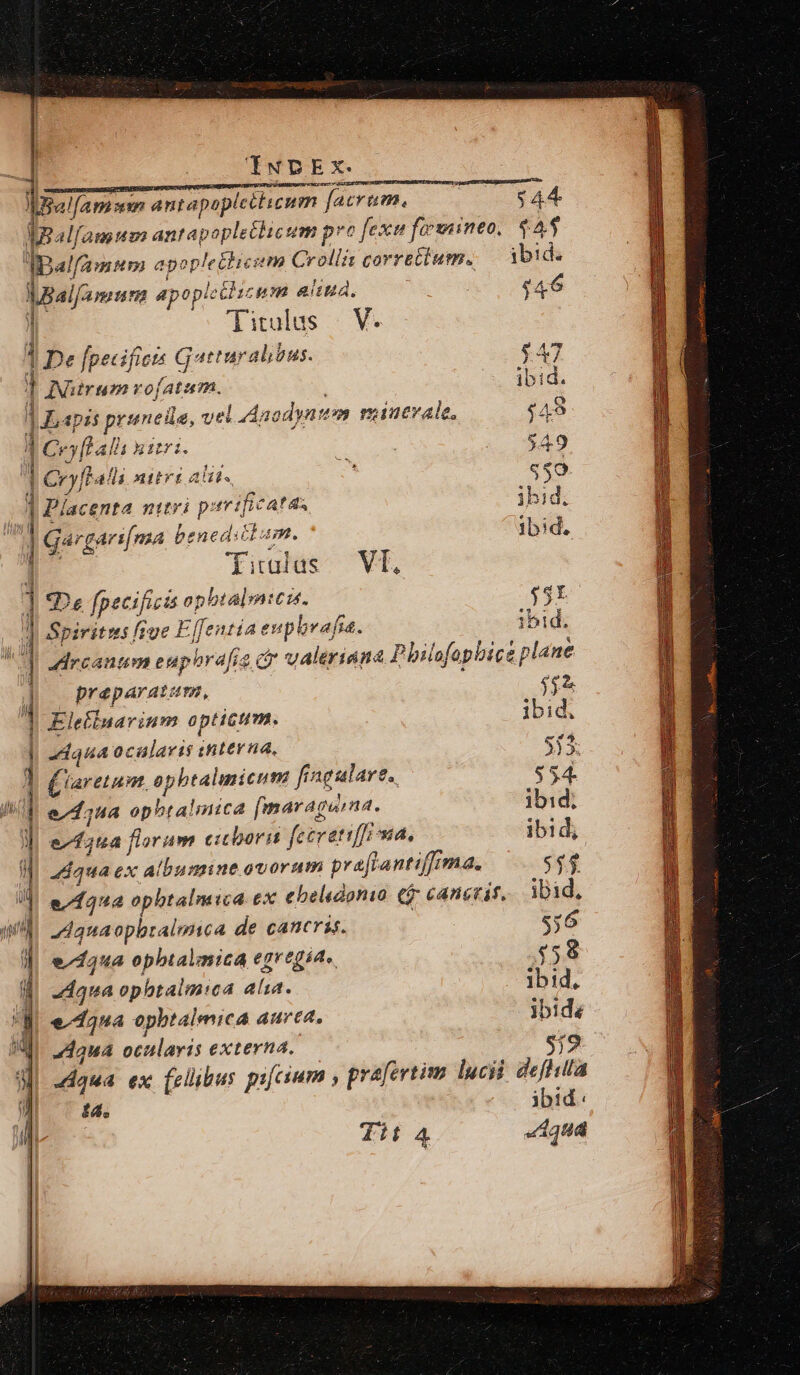 INDEX.
Balſamum antapoplecticum ſacrum. 544
Balſamum antapoplecticum pro ſexu fœmineo. 545
Balſamum apoplecticum Crollii correctum. ibid.
Balſamum apoplecticum aliud. 546
Titulus V.
De ſpecificis Gutturalibus. 547
Nitrum roſatum. ibid.
Lapis prunellæ, vel Anodynum minerale. 548
Cryſtalli nitri. 549
Cryſtalli nitri alii. 550
Placenta nitri purificata. ibid.
Gargariſma benedictum. ibid.
Titulus VI.
De ſpecificis ophtalmicis. 551
Spiritus ſive Eſſentia euphraſiæ. ibid.
Arcanum euphraſiæ & valeriana Philoſophice plane
præparatum, 552
Electuarium opticum. ibid.
Aqua ocularis interna. 553.
Claretum ophtalmicum ſingulare. 554
Aqua ophtalmica ſmaragdina. ibid;
Aqua florum cichorii ſecretiſſima. ibid;
Aqua ex albumine ovorum præſtantiſſima. 555
Aqua ophtalmica ex chelidonio & cancris. ibid.
Aqua ophtalmica de cancris. 556
Aqua ophtalmica egregia. 558
Aqua ophtalmica alia. ibid.
Aqua ophtalmica aurea. ibid.
Aqua ocularis externa. 559
Aqua ex fellibus piſcium, præſertim lucii deſtilla
ta. ibid.
Tit 4 Aqua